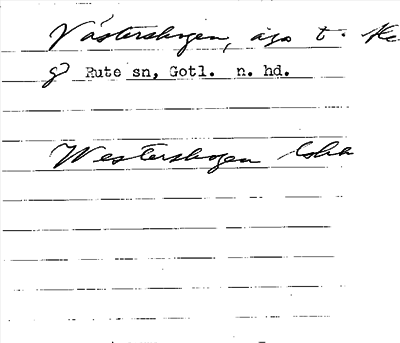 Västerskogen, ägo t.
Rute sn, Gotl. n. hd.
Westerskogen